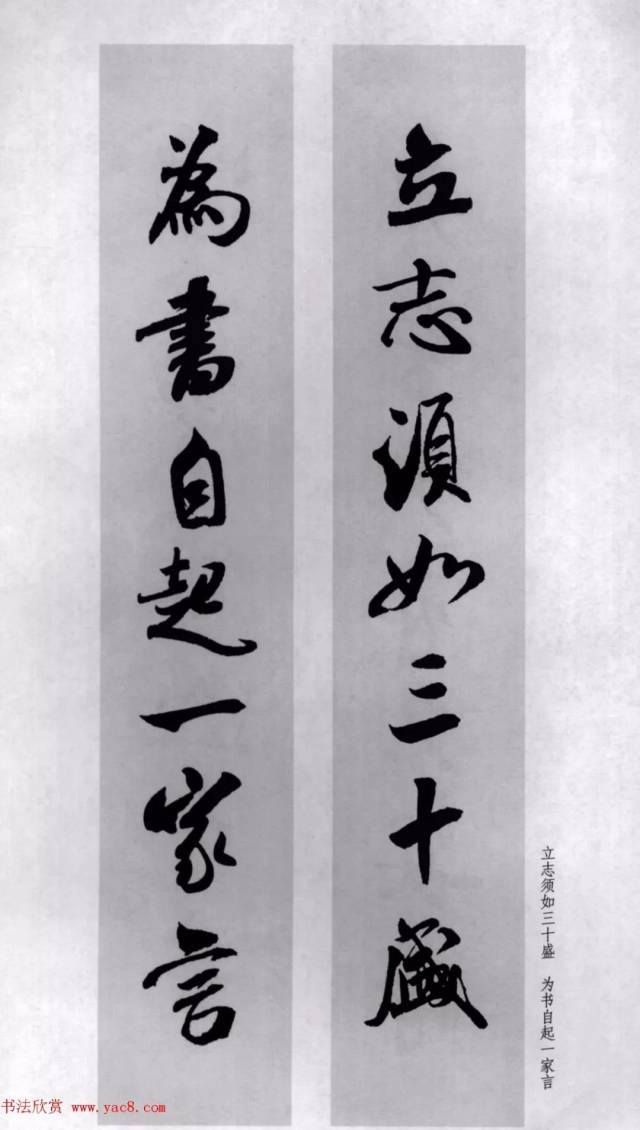 立志須如三十盛
為書自起一家言
立志须如三十盛 为书自起一家言
书法欣赏 www.yac8.com